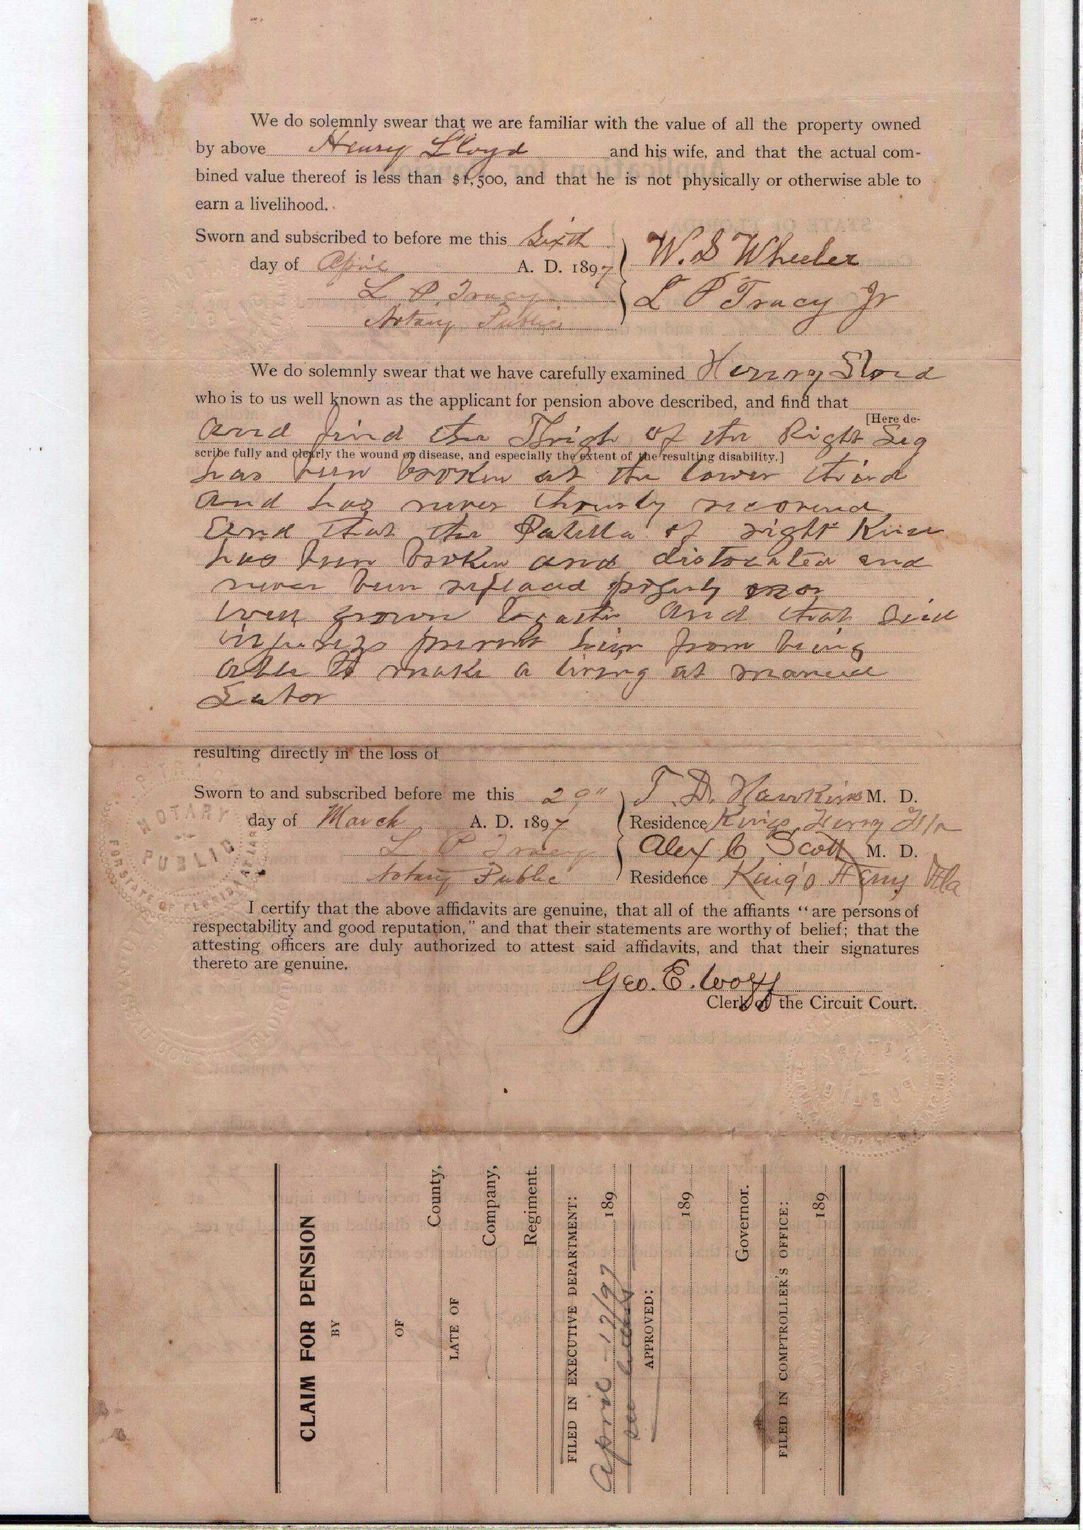 We do solemnly swear that we are familiar with the value of all the property owned
by above Henry Lloyd and his wife, and that the actual com-
bined value thereof is less than $1,500, and that he is not physically or otherwise able to
earn a livelihood.
Sworn and subscribed to before me this Sixth
day of April A. D. 1897
L P. Tracy
Notary Public
W. S Wheeler
L P Tracy Jr
We do solemnly swear that we have carefully examined Henry Lloid
who is to us well known as the applicant for pension above described, and find that
[Here de-
and find the Thigh of the Right Leg
scribe fully and clearly the wound or disease, and especially the extent of the resulting disability.]
has been broken at the lower third
and has never
And that the Patella of right Knee
has been broken and dislocated and
never been
grown And that said
him from being
able to make a living at
Labor
resulting directly in the loss of
Sworn to and subscribed before me this 29"
day of March A. D. 1897
L P Tracy
Notary Public
T. D. Hawkins M. D.
Residence Kings Ferry Fla
Alex C Scott M. D.
Residence King's Ferry Fla
NOTARY
PUBLIC
FOR STATE OF FLORIDA AT LARGE
I certify that the above affidavits are genuine, that all of the affiants "are persons of
respectability and good reputation," and that their statements are worthy of belief; that the
attesting officers are duly authorized to attest said affidavits, and that their signatures
thereto are genuine.
Geo. E. Wolff
Clerk of the Circuit Court.
CLAIM FOR PENSION
BY
OF
County,
LATE OF
Company,
Regiment.
FILED IN EXECUTIVE DEPARTMENT:
April - 12/97 189
see
APPROVED:
189
Governor.
FILED IN COMPTROLLER'S OFFICE:
189